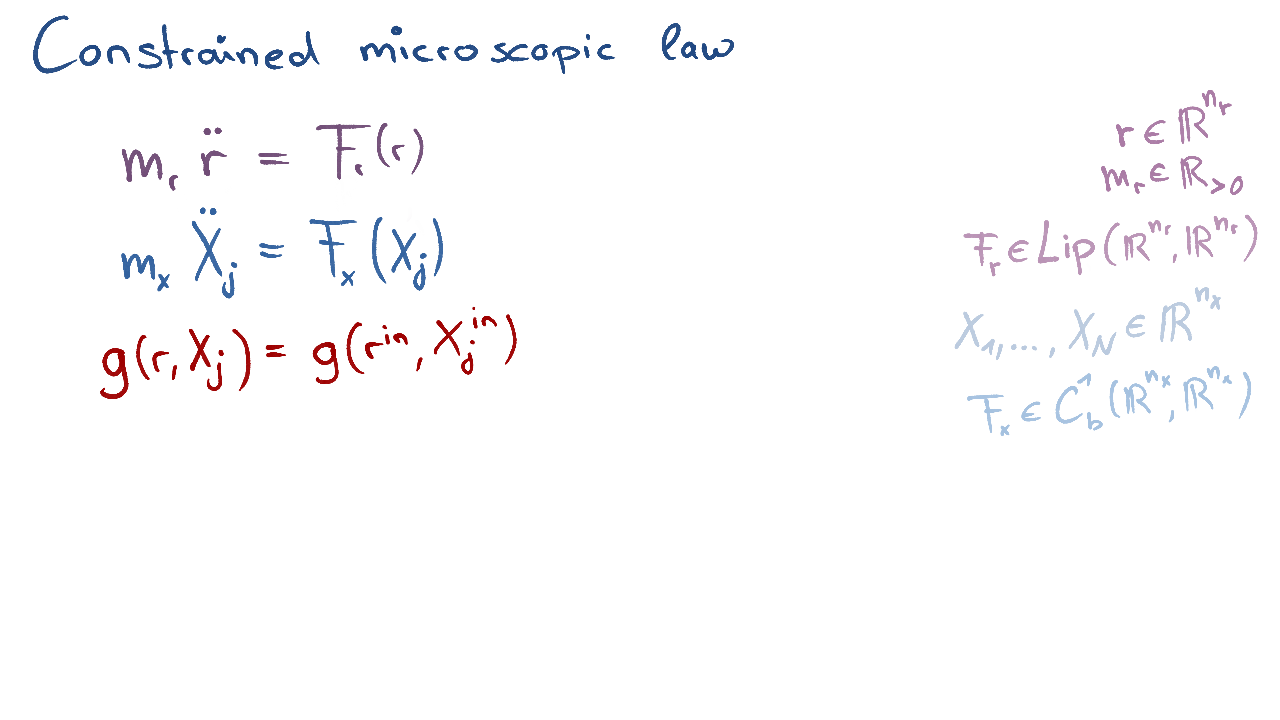 Constrained microscopic law
mᵣ r̈ = Fᵣ(r)
mₓ Ẍⱼ = Fₓ(Xⱼ)
g(r, Xⱼ) = g(rⁱⁿ, Xⱼⁱⁿ)
r ∈ ℝⁿʳ
mᵣ ∈ ℝ_{>0}
Fᵣ ∈ Lip(ℝⁿʳ, ℝⁿʳ)
X₁, ..., X_N ∈ ℝⁿˣ
Fₓ ∈ C¹_b(ℝⁿˣ, ℝⁿˣ)